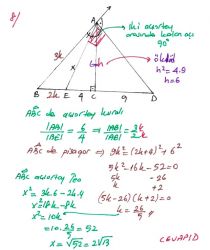 8/
A
iki açıortay
arasında kalan açı
90°
3k
x
6=h
öklid
h²=4.9
h=6
B
2k
E
4
C
9
D
ABC de açıortay kuralı
|AB|/|BE| = 6/4 ⇒ |AB|/|BE| = 3k/2k
ABC de pisagor ⇒ 9k²=(2k+4)²+6²
5k²-16k-52=0
5k -26
k +2
(5k-26)(k+2)=0
k=26/5
ABC açıortay teo
x²=3k.6-2k.4
x²=18k-8k
x²=10k
=10.26/5=52
x=√52=2√13
CEVAP:D